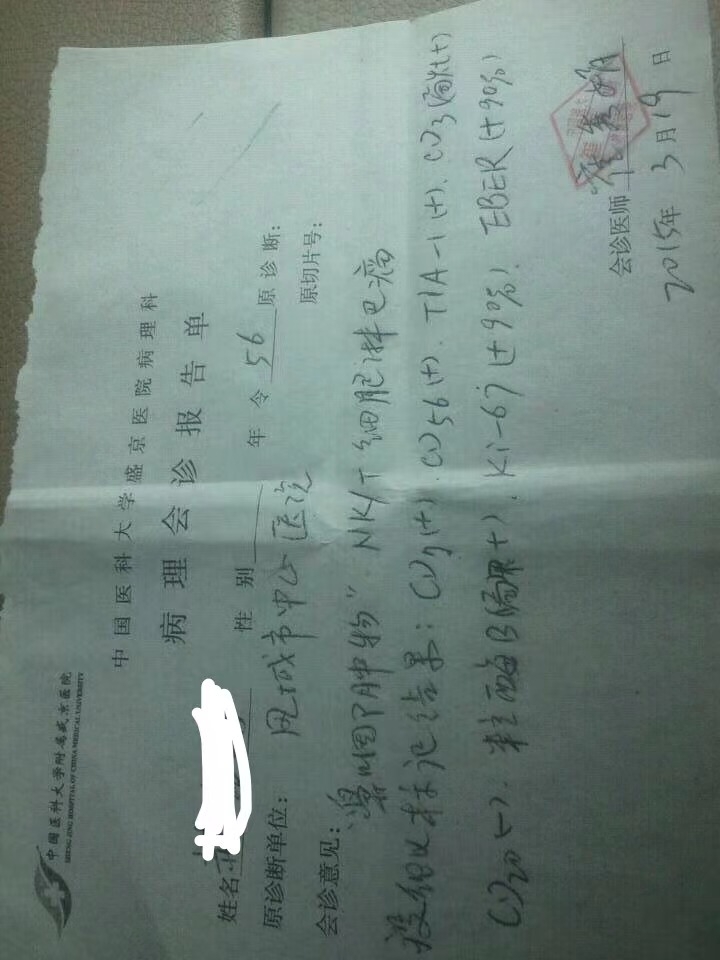 中国医科大学附属盛京医院
SHENG JING HOSPITAL OF CHINA MEDICAL UNIVERSITY
中国医科大学盛京医院病理科
病理会诊报告单
姓名 性别 年令 56 原诊断:
原诊断单位: 凤城市中心医院 原切片号:
会诊意见:
“鼻咽部肿物” NK/T细胞淋巴瘤
免疫组化标记结果: CD2(+). CD56(+). TIA-1(+). CD3(局灶+)
CD20(-). 粒酶B(局灶+). Ki-67(+90%). EBER(+90%)
会诊医师
2015年3月19日